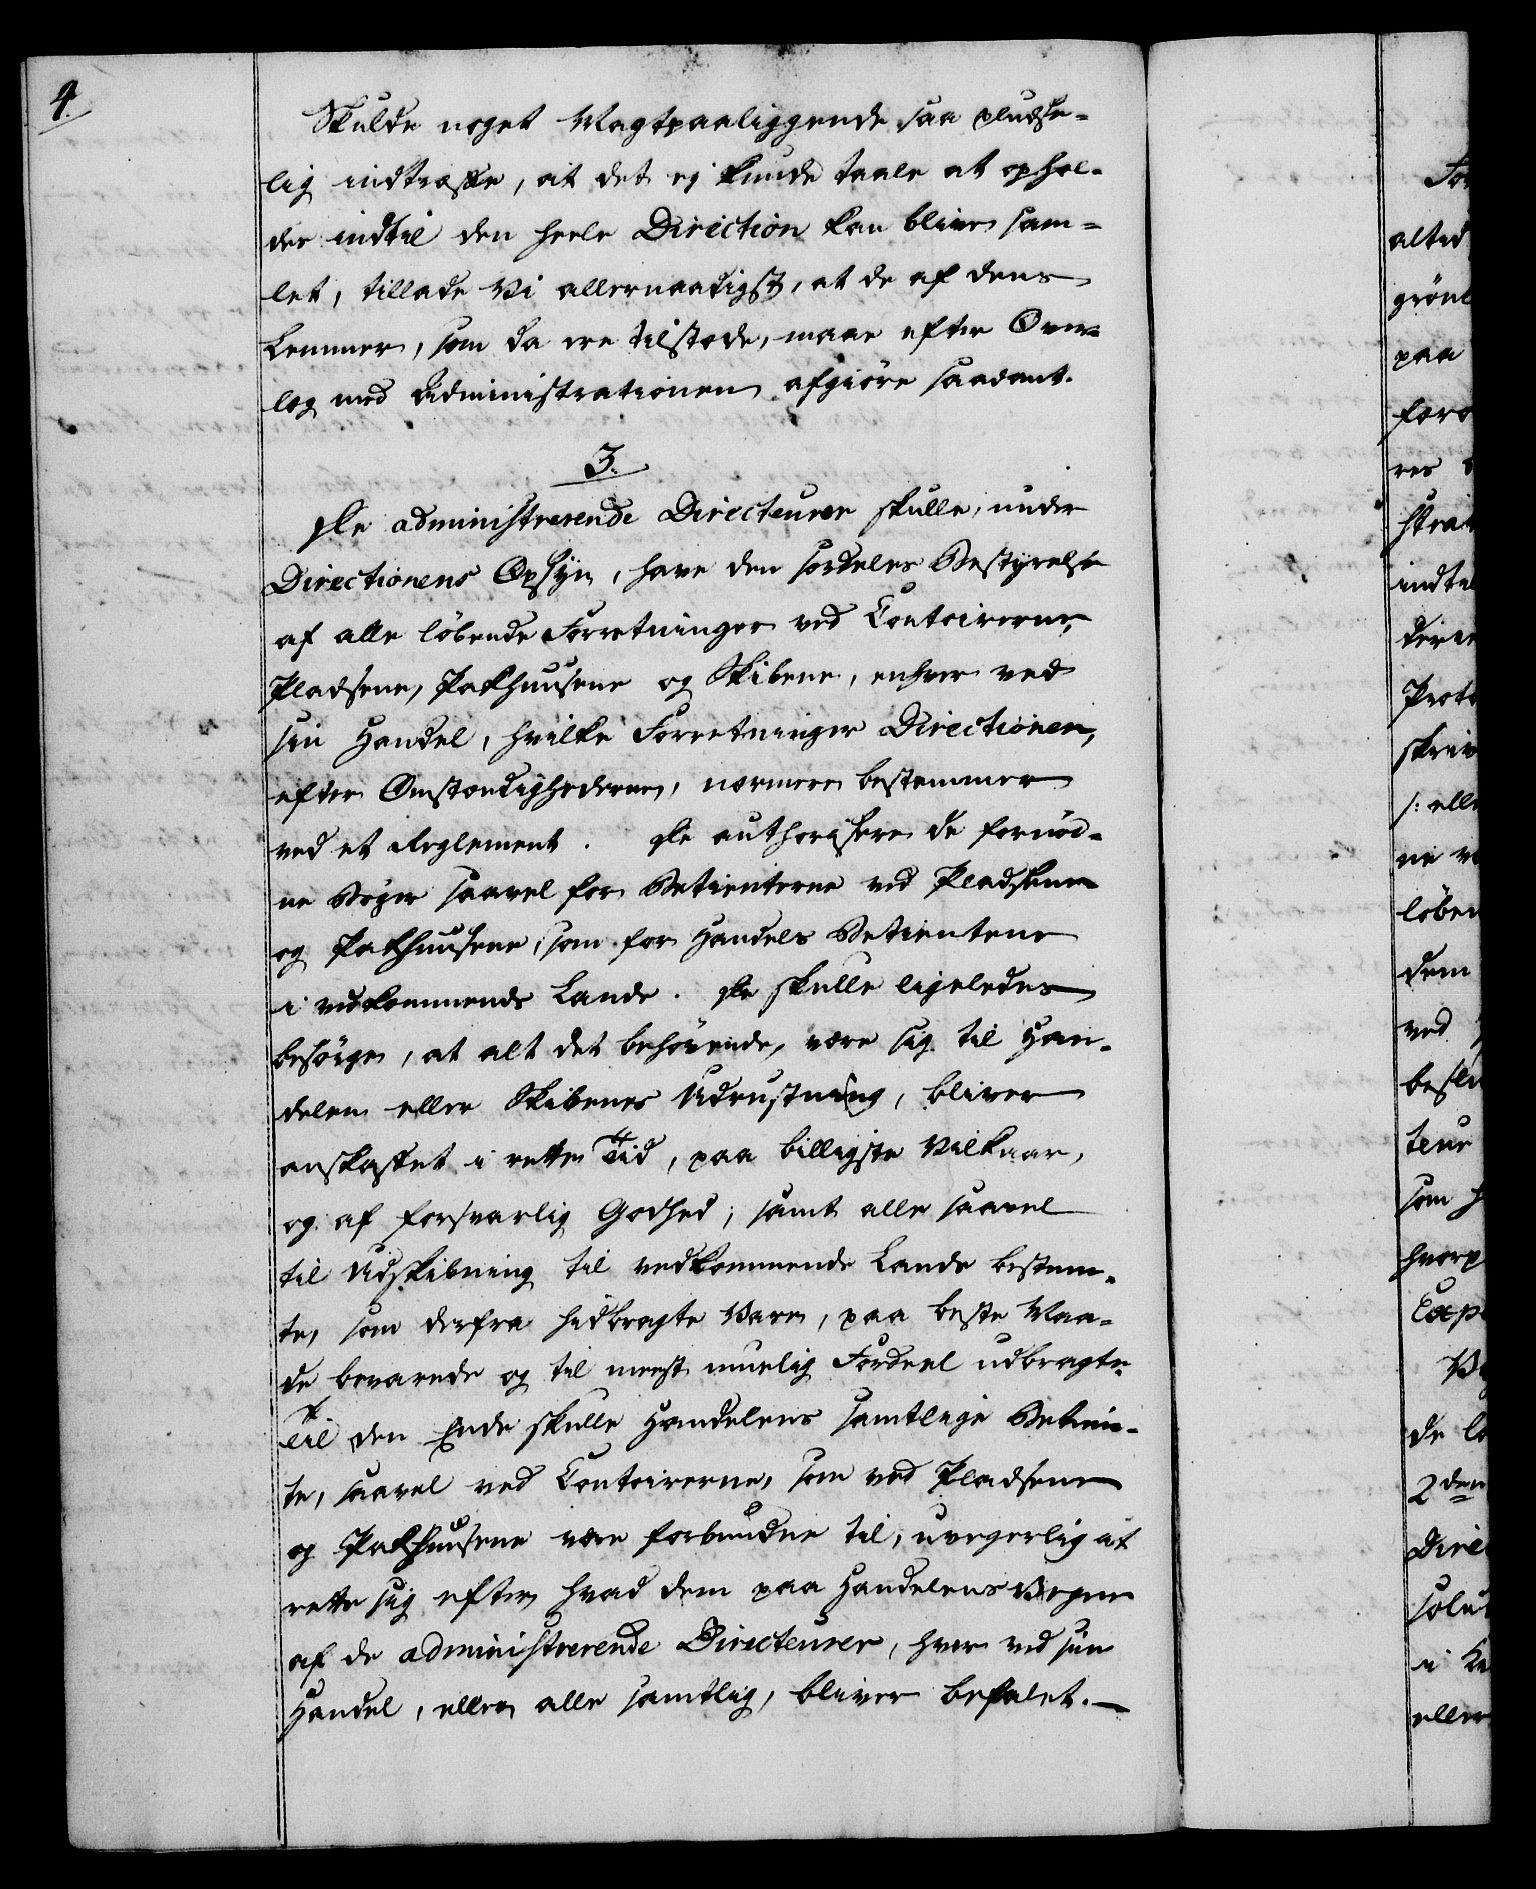 4.
Skulde noget Magtpaaliggende saa pludse-
lig indtræffe, at det ej kunde taale at ophol-
des indtil den heele Direction kan blive sam-
let, tillade Vi allernaadigst, at de af dens
Lemmer, som da ere tilstæde, maae efter Over-
læg med Administrationen afgiöre saadant.
3.
De administrerende Directeurer skulle, under
Directionens Opsyn, have den særdeles Bestyrelse
af alle löbende Forretninger ved Contoirerne,
Pladsene, Pakhuusene og Skibene, enhver ved
sin Handel, hvilke Forretninger Directionen,
efter Omstændighederne, nærmere bestemmer
ved et Reglement. De authorisere de fornöd-
ne Böger saavel for Betienterne ved Pladsene
og Pakhuusene, som for Handels Betientene
i vedkommende Lande. De skulle ligeledes
besörge, at alt det behövende, være sig til Han-
delen eller Skibenes Udrustning, bliver
anskaffet i rette Tid, paa billigste Vilkaar,
og af forsvarlig Godhed; samt alle saavel
til Udskibning til vedkommende Lande bestem-
te, som derfra hidbragte Vare, paa beste Maa-
de bevarede og til meest muelig Fordeel udbragte.
Til den Ende skulle Handelens samtlige Betien-
te, saavel ved Contoirerne, som ved Pladsene
og Pakhuusene være forbundne til, uvegerlig at
rette sig efter, hvad dem paa Handelens Vegne
af de administrerende Directeurer, hver ved sin
Handel, eller alle samtlig, bliver befalet.
For
altid
grönl
paa
fære
res
strat
indtil
deres
Proto
skriv
/: elle
ne ve
löben
dem
ved
beslu
teur
som h
hvorp
Expe
de
2den
Direc
solut
i
eller